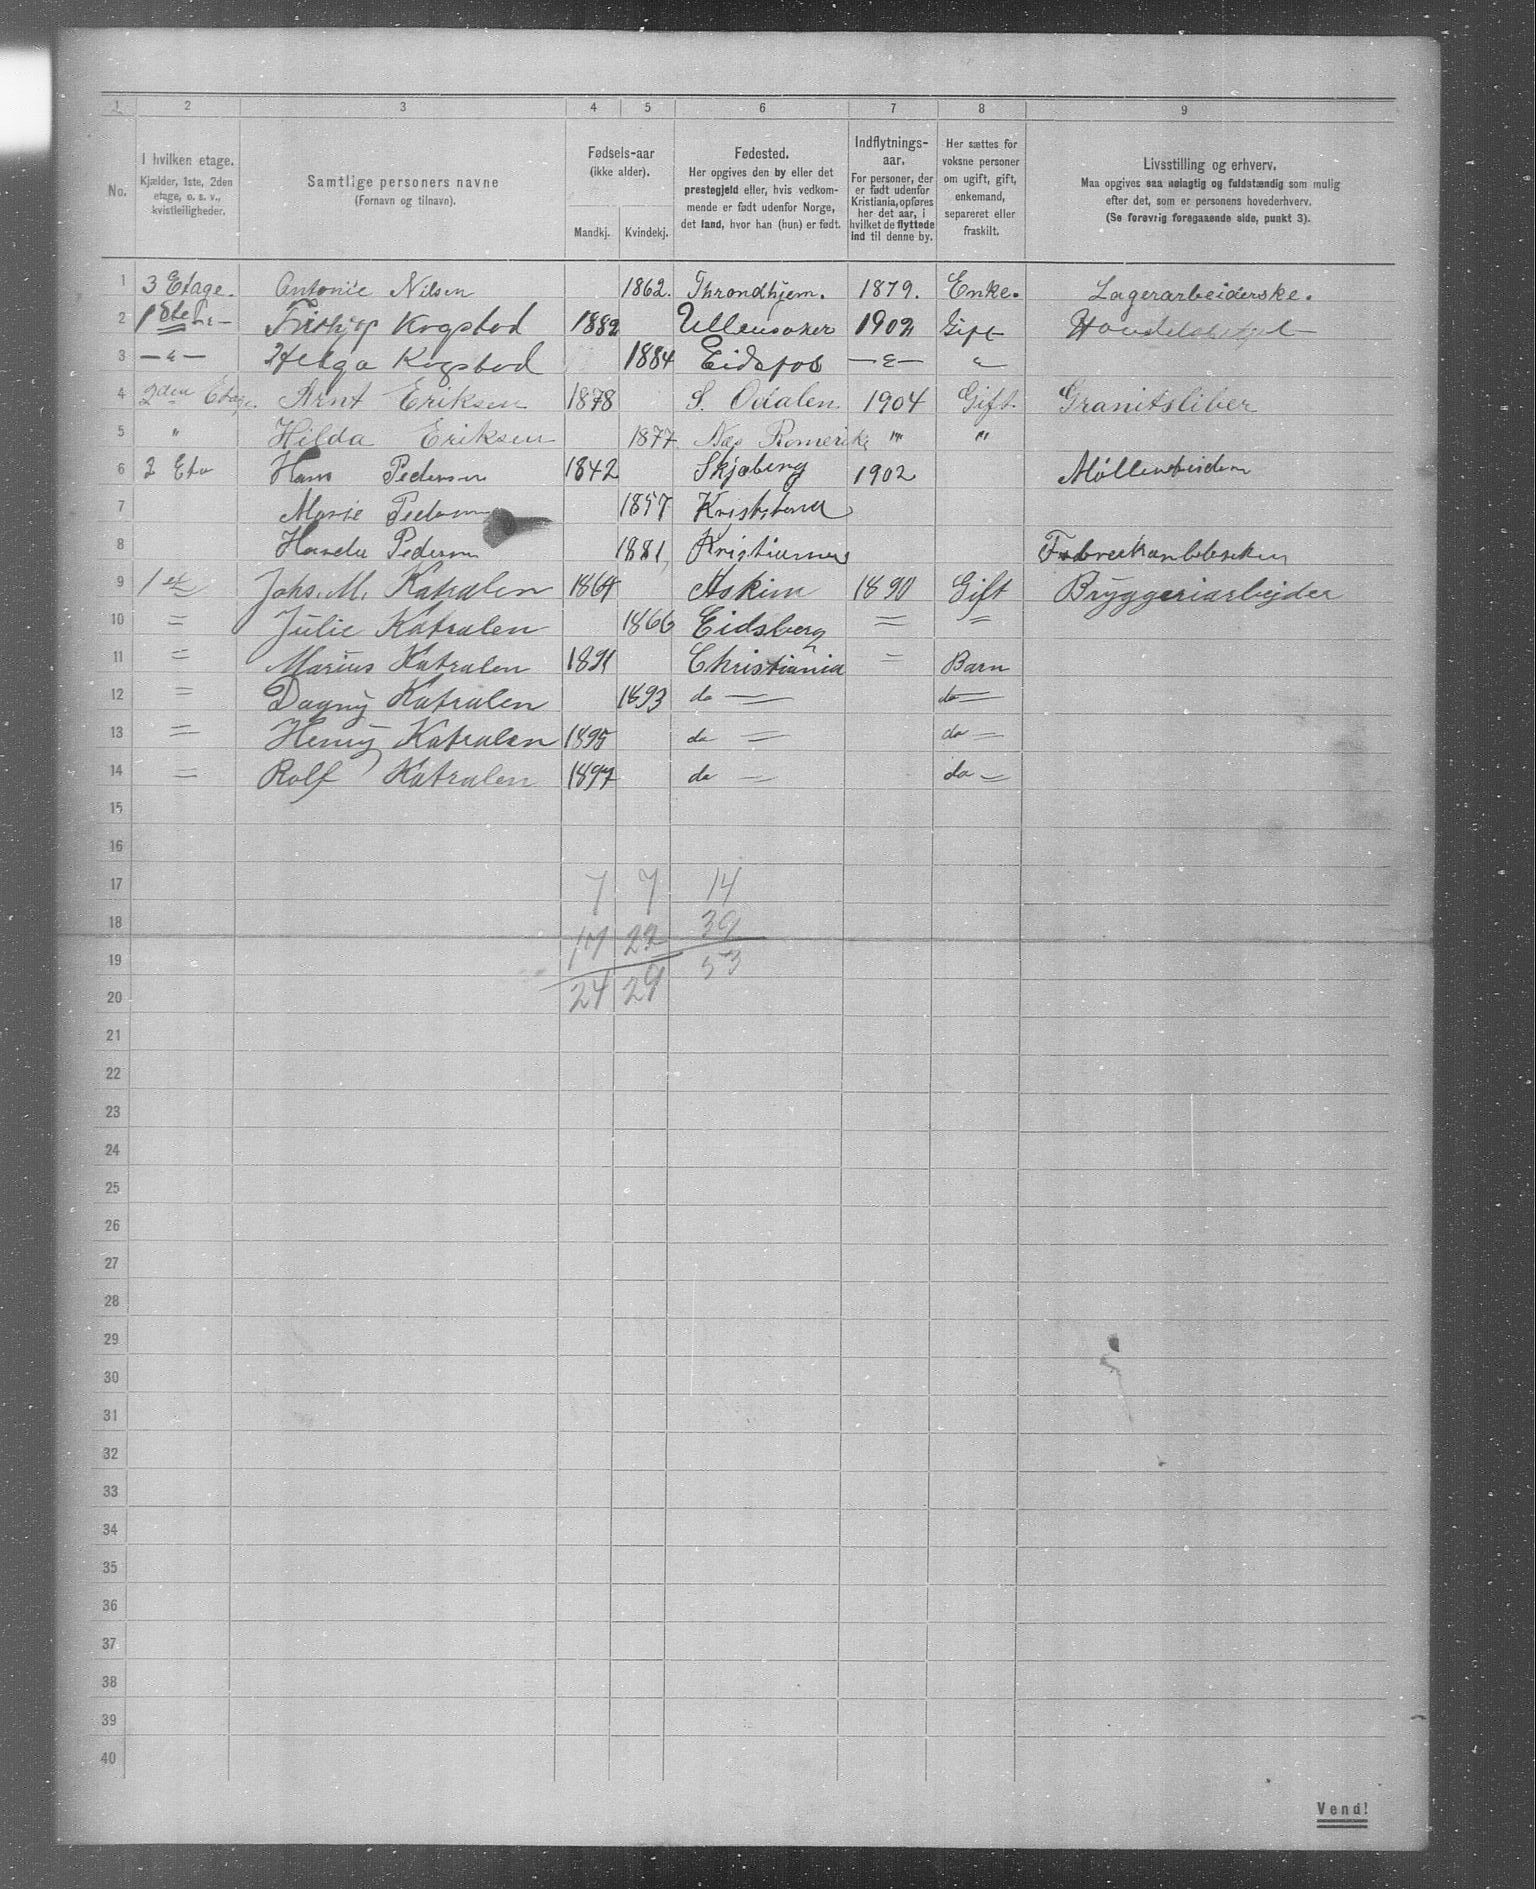 1 2 3 4 5 6 7 8 9
No.
I hvilken etage.
Kjælder, 1ste, 2den
etage, o. s. v.,
kvistleiligheder.
Samtlige personers navne
(Fornavn og tilnavn).
Fødsels-aar
(ikke alder).
Mandkj. Kvindekj.
Fødested.
Her opgives den by eller det
prestegjeld eller, hvis vedkom-
mende er født udenfor Norge,
det land, hvor han (hun) er født.
Indflytnings-
aar.
For personer, der
er født udenfor
Kristiania, opføres
her det aar, i
hvilket de flyttede
ind til denne by.
Her sættes for
voksne personer
om ugift, gift,
enkemand,
separeret eller
fraskilt.
Livsstilling og erhverv.
Maa opgives saa nøiagtig og fuldstændig som mulig
efter det, som er personens hovederhverv.
(Se forøvrig foregaaende side, punkt 3).
1 3 Etage. Antonie Nilsen 1862. Throndhjem. 1879. Enke. Lagerarbeiderske.
2 Kogstad 1882 Ullensaker 1902 Gift
3 —"— Helga Kogstad 1884 Eidsfos —"— "
4 2den Etage. Arnt Eriksen 1878 S. Odalen 1904 Gift Granitsliber
5 " Hilda Eriksen 1877 Næs Romerike "" ""
6 2 Eta Hans Pedersen 1842 Skjeberg 1902
7 Marie Pedersen 1857
8 Pedersen 1881
9 1 et Johs. M. Katralen 1864 Askim 1890 Gift Bryggeriarbejder
10 = Julie Katralen 1866 Eidsberg = =
11 = Marius Katralen 1891 Christiania = Barn
12 = Dagny Katralen 1893 do = do =
13 = Henry Katralen 1895 do = do =
14 = Rolf Katralen 1897 do = do =
15
16
17 7 7 14
18 17 22 39
19 53
20 24 29
21
22
23
24
25
26
27
28
29
30
31
32
33
34
35
36
37
38
39
40
Vend!